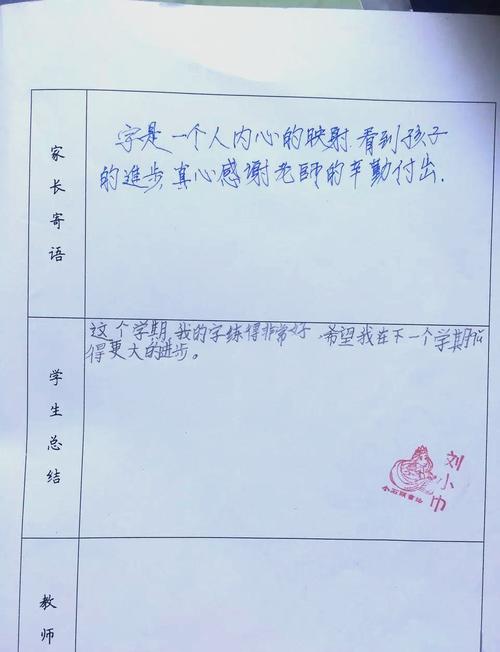 家长寄语
字是一个人内心的映射.看到孩子
的進步,真心感谢老師的辛勤付出.
学生总结
这个学期,我的字练得非常好,希望我在下一个学期
得更大的进步。
刘小巾
教师